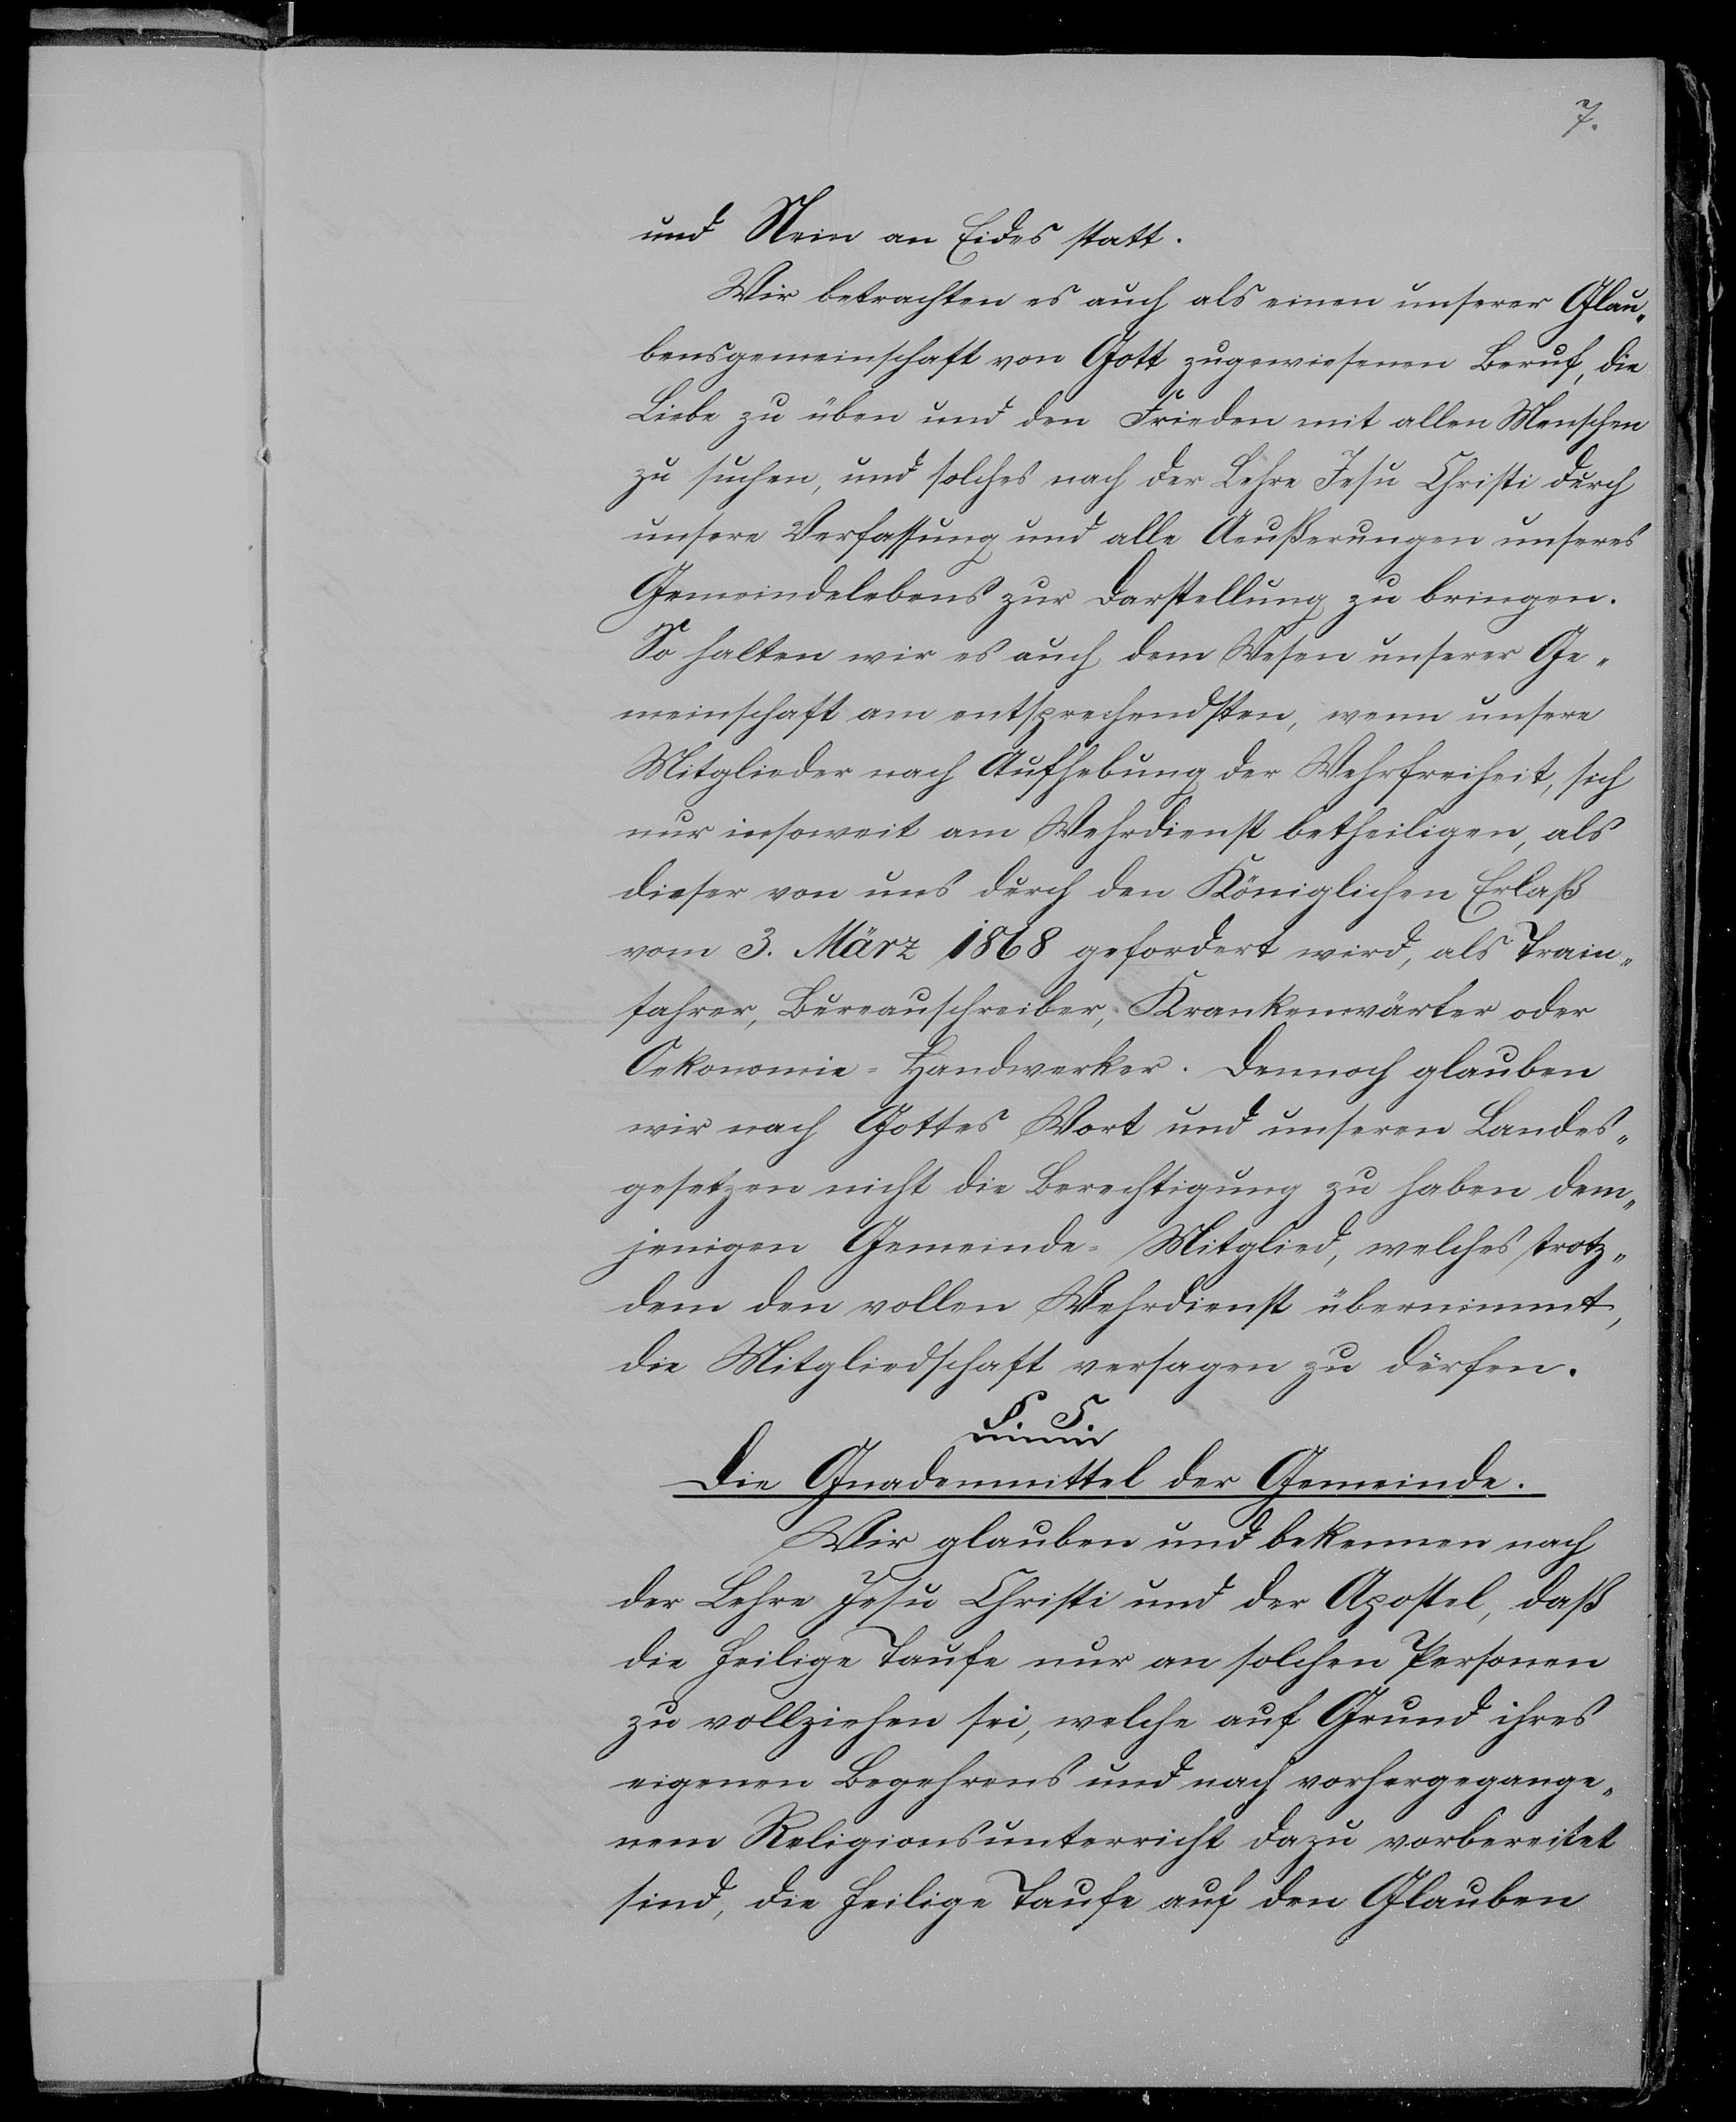 7.
und Nein an Eides statt.
Wir betrachten es auch als einen unserer Glau„
bensgemeinschaft von Gott zugewiesenen Beruf, die
Liebe zu üben und den Frieden mit allen Menschen
zu suchen, und solches nach der Lehre Jesu Christi durch
unsere Verfassung und alle Aeußerungen unseres
Gemeindelebens zur Darstellung zu bringen.
So halten wir es auch dem Wesen unserer Ge„
meinschaft am entsprechendsten, wenn unsere
Mitglieder nach Aufhebung der Wehrfreiheit, sich
nur insoweit am Wehrdienst betheiligen, als
dieser von uns durch den Königlichen Erlaß
vom 3. März 1868 gefordert wird, als Train„
fahrer, Bureauschreiber, Krankenwärter oder
Oekonomie=Handwerker. Dennoch glauben
wir nach Gottes Wort und unseren Landes„
gesetzen nicht die Berechtigung zu haben dem„
jenigen Gemeinde=Mitglied, welches trotz„
dem den vollen Wehrdienst übernimmt,
die Mitgliedschaft versagen zu dürfen.
§ 5.
Die Gnadenmittel der Gemeinde.
Wir glauben und bekennen nach
der Lehre Jesu Christi und der Apostel, daß
die heilige Taufe nur an solchen Personen
zu vollziehen sei, welche auf Grund ihres
eigenen Begehrens und nach vorhergegange„
nem Religionsunterricht dazu vorbereitet
sind, die heilige Taufe auf den Glauben